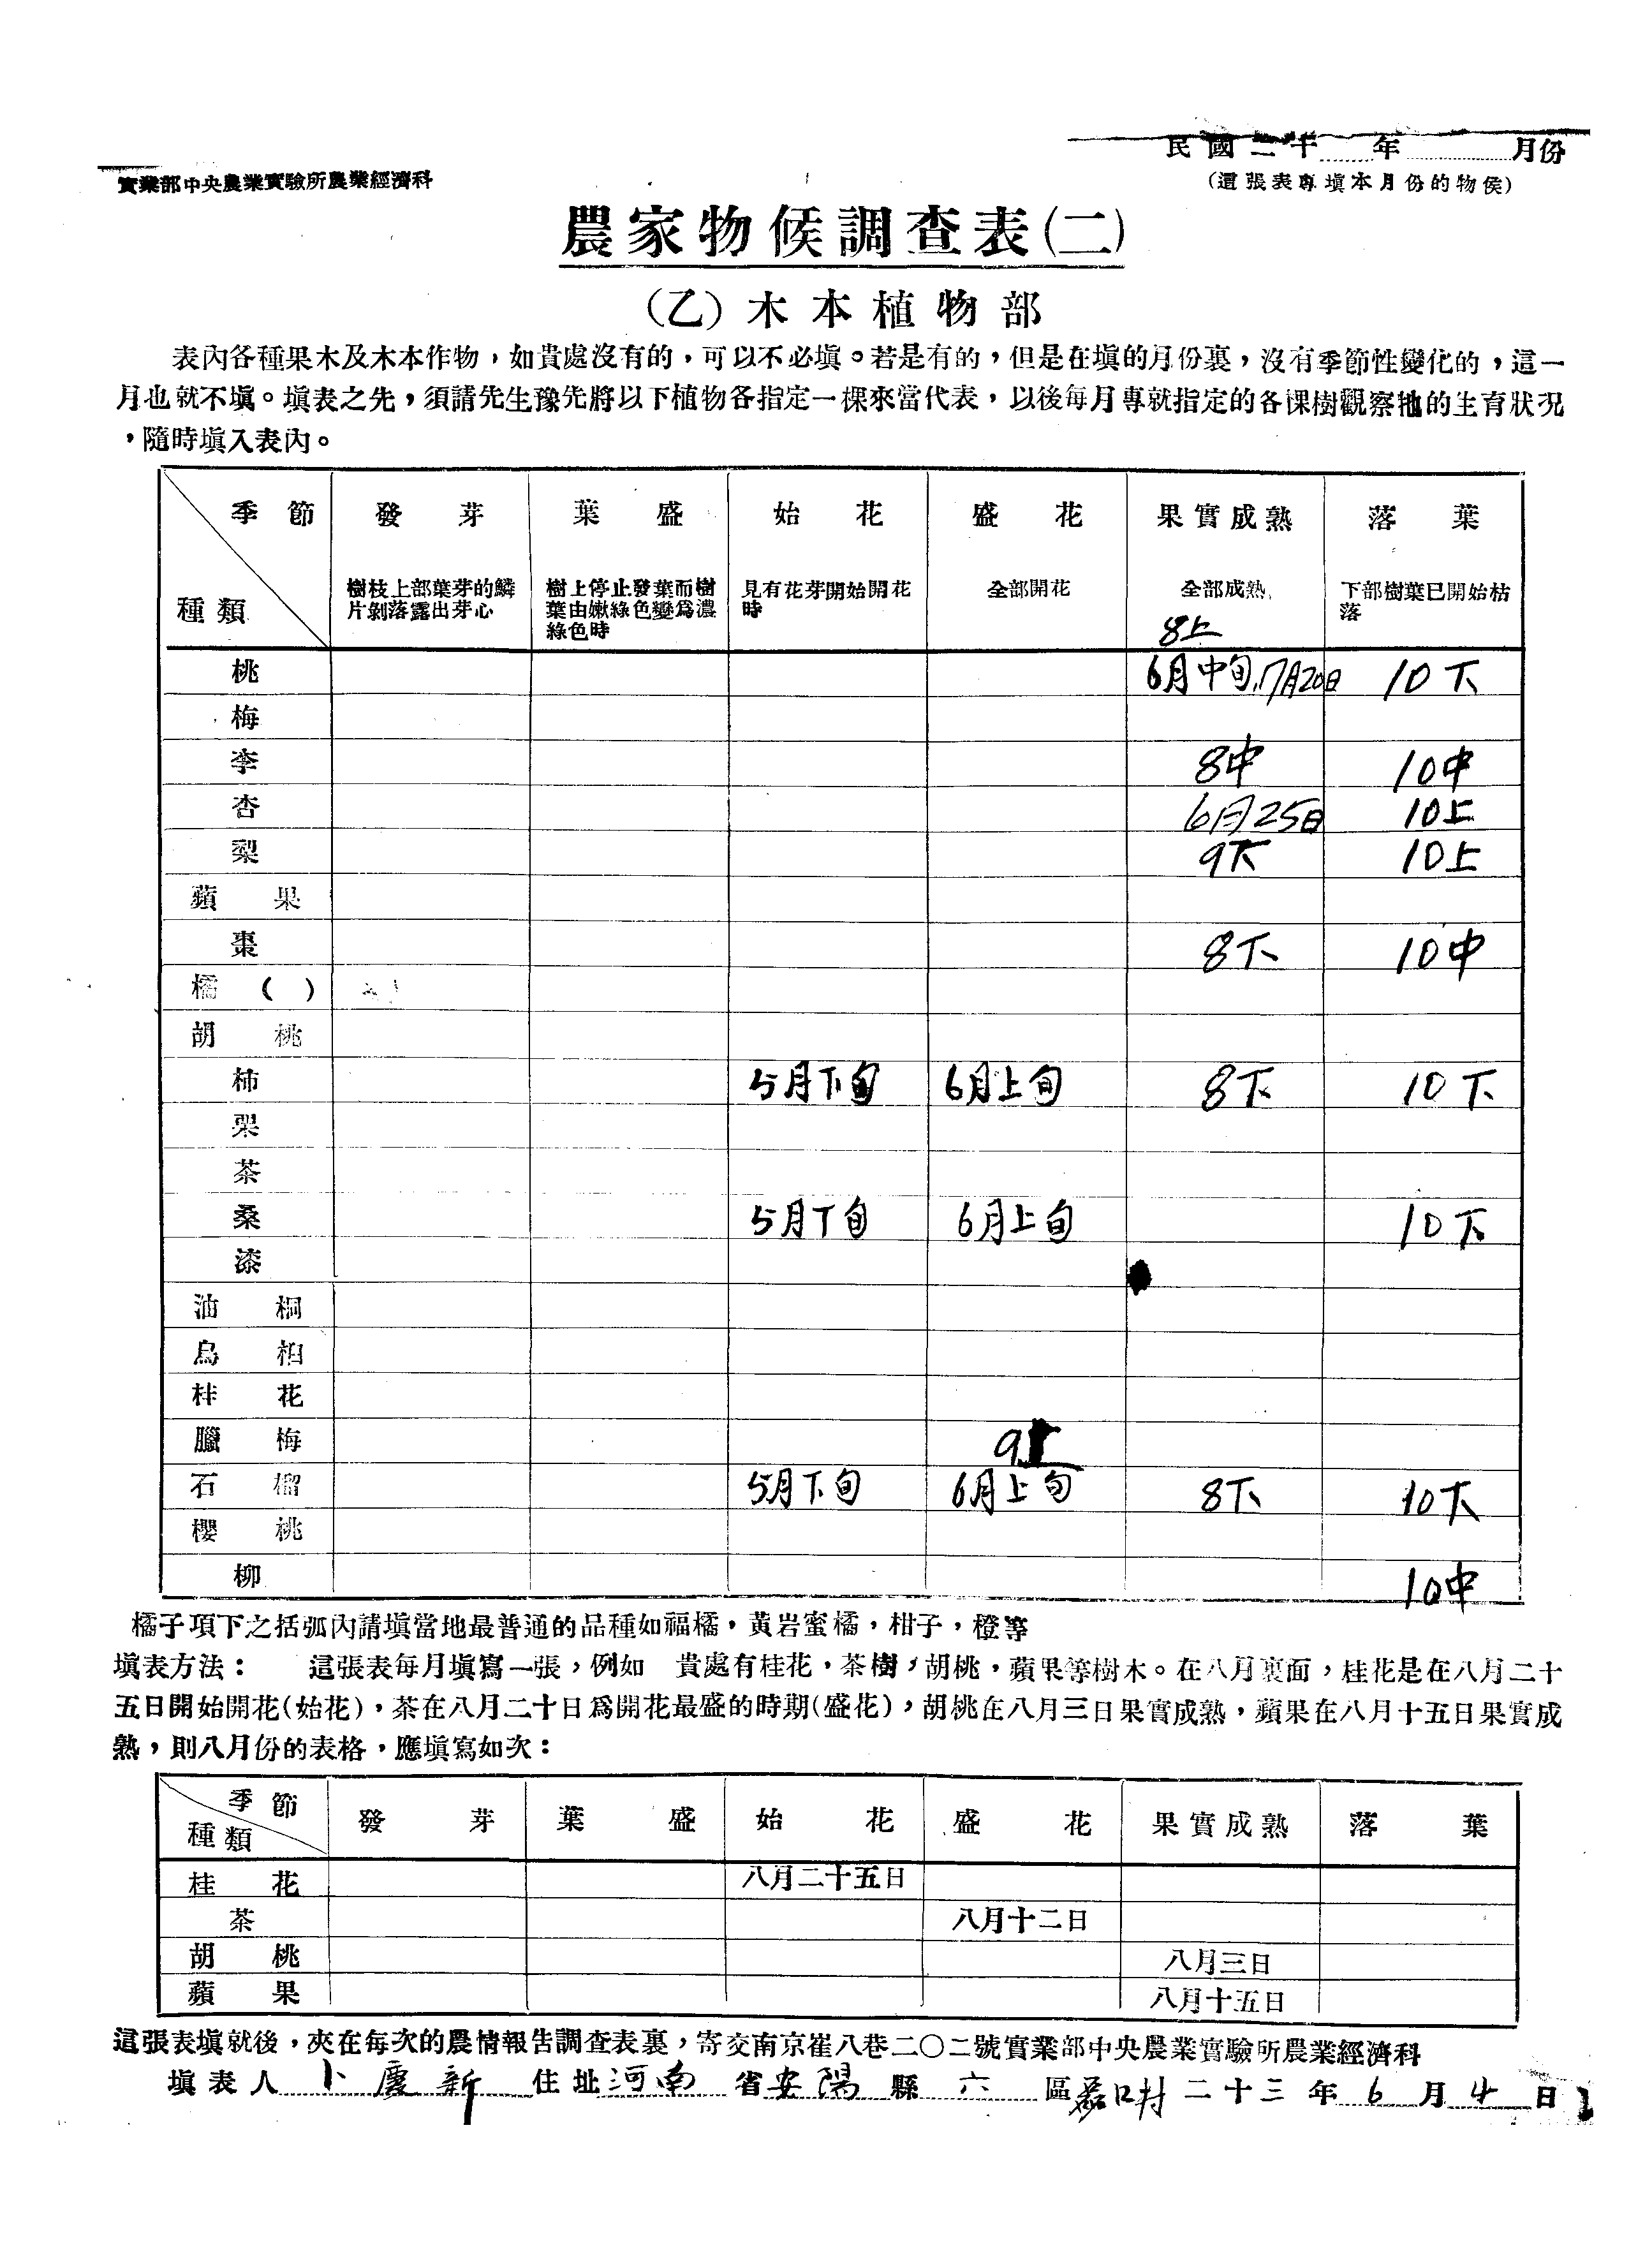 民國二十 年 月份
實業部中央農業實驗所農業經濟科
(這張表專填本月份的物侯)
農家物候調查表(二)
(乙)木本植物部
表內各種果木及木本作物，如貴處沒有的，可以不必填。若是有的，但是在填的月份裏，沒有季節性變化的，這一
月也就不填。填表之先，須請先生豫先將以下植物各指定一棵來當代表，以後每月專就指定的各棵樹觀察牠的生育狀況
，隨時填入表內。
季節 發芽 葉盛 始花 盛花 果實成熟 落葉
種類 樹枝上部葉芽的鱗片剝落露出芽心 樹上停止發葉而樹葉由嫩綠色變為濃綠色時 見有花芽開始開花時 全部開花 全部成熟 下部樹葉已開始枯落
8上
桃 6月中旬,7月20日 10下
梅
李 8中 10中
杏 6月25日 10上
梨 9下 10上
蘋果
棗 8下 10中
橘( )
胡桃
柿 5月下旬 6月上旬 8下 10下
栗
茶
桑 5月下旬 6月上旬 10下
漆
油桐
烏桕
桂花
臘梅 9上
石榴 5月下旬 6月上旬 8下 10下
櫻桃
柳 10中
橘子項下之括弧內請填當地最普通的品種如福橘，黃岩蜜橘，柑子，橙等
填表方法： 這張表每月填寫一張，例如 貴處有桂花，茶樹，胡桃，蘋果等樹木。在八月裏面，桂花是在八月二十
五日開始開花(始花)，茶在八月二十日為開花最盛的時期(盛花)，胡桃在八月三日果實成熟，蘋果在八月十五日果實成
熟，則八月份的表格，應填寫如次：
季節 發芽 葉盛 始花 盛花 果實成熟 落葉
種類
桂花 八月二十五日
茶 八月十二日
胡桃 八月三日
蘋果 八月十五日
這張表填就後，夾在每次的農情報告調查表裏，寄交南京崔八巷二〇二號實業部中央農業實驗所農業經濟科
填表人 卜慶新 住址 河南 省 安陽 縣 六 區 口村 二十三年 6 月 4 日